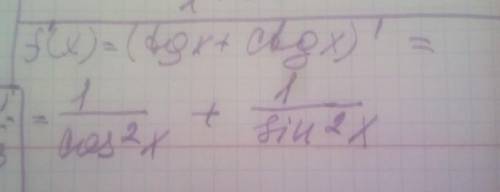 f'(x) = (tgx + ctgx)' =
= 1/cos²x + 1/sin²x